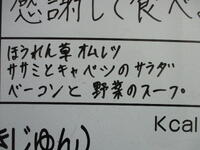 感謝して食べ
ほうれん草オムレツ
ササミとキャベツのサラダ
ベーコンと野菜のスープ。
Kcal
きじゅん)